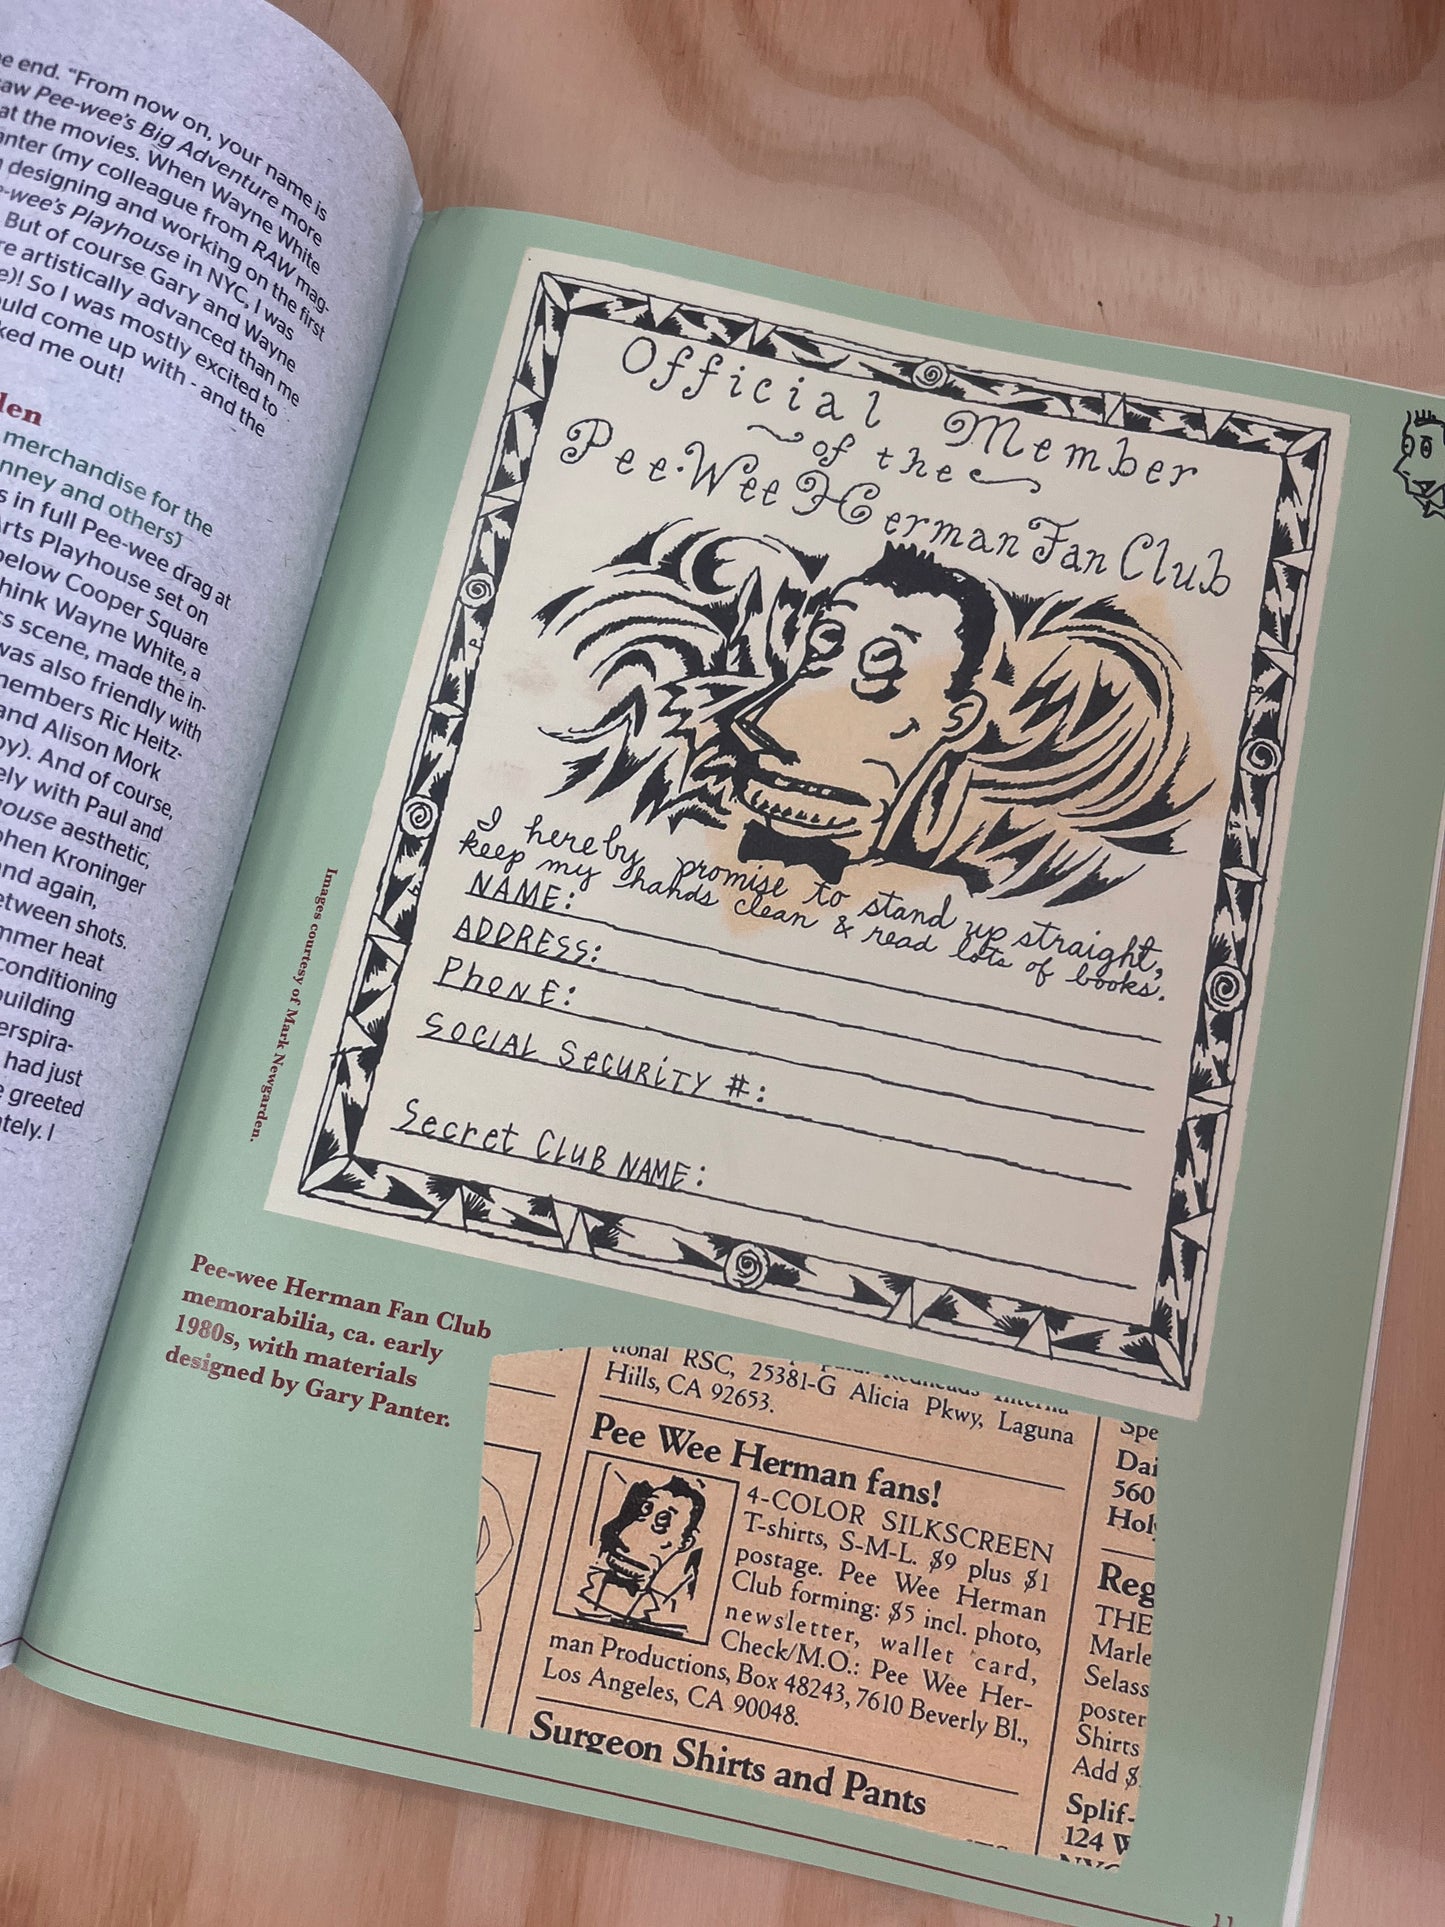 e end. "From now on, your name is
aw Pee-wee's Big Adventure more
at the movies. When Wayne White
anter (my colleague from RAW mag-
designing and working on the first
e-wee's Playhouse in NYC, I was
But of course Gary and Wayne
re artistically advanced than me
e)! So I was mostly excited to
ould come up with - and the
ked me out!
den
merchandise for the
nney and others)
s in full Pee-wee drag at
Arts Playhouse set on
below Cooper Square
hink Wayne White, a
cs scene, made the in-
was also friendly with
members Ric Heitz-
and Alison Mork
by). And of course,
ely with Paul and
house aesthetic,
phen Kroninger
nd again,
etween shots.
mmer heat
conditioning
uilding
erspira-
had just
e greeted
ately. I
Images courtesy of Mark Newgarden.
Official Member
of the
Pee-Wee Herman Fan Club
I hereby promise to stand up straight,
keep my hands clean & read lots of books.
NAME:
ADDRESS:
PHONE:
SOCIAL SECURITY #:
Secret CLUB NAME:
Pee-wee Herman Fan Club
memorabilia, ca. early
1980s, with materials
designed by Gary Panter.
tional RSC, 25381-G Alicia Pkwy, Laguna
Hills, CA 92653.
Pee Wee Herman fans!
4-COLOR SILKSCREEN
T-shirts, S-M-L. $9 plus $1
postage. Pee Wee Herman
Club forming: $5 incl. photo,
newsletter, wallet card,
Check/M.O.: Pee Wee Her-
man Productions, Box 48243, 7610 Beverly Bl.,
Los Angeles, CA 90048.
Surgeon Shirts and Pants
Spe
Dai
560
Hol
Reg
THE
Marle
Selass
poster
Shirts
Add $
Splif-
124 W
NYC
11